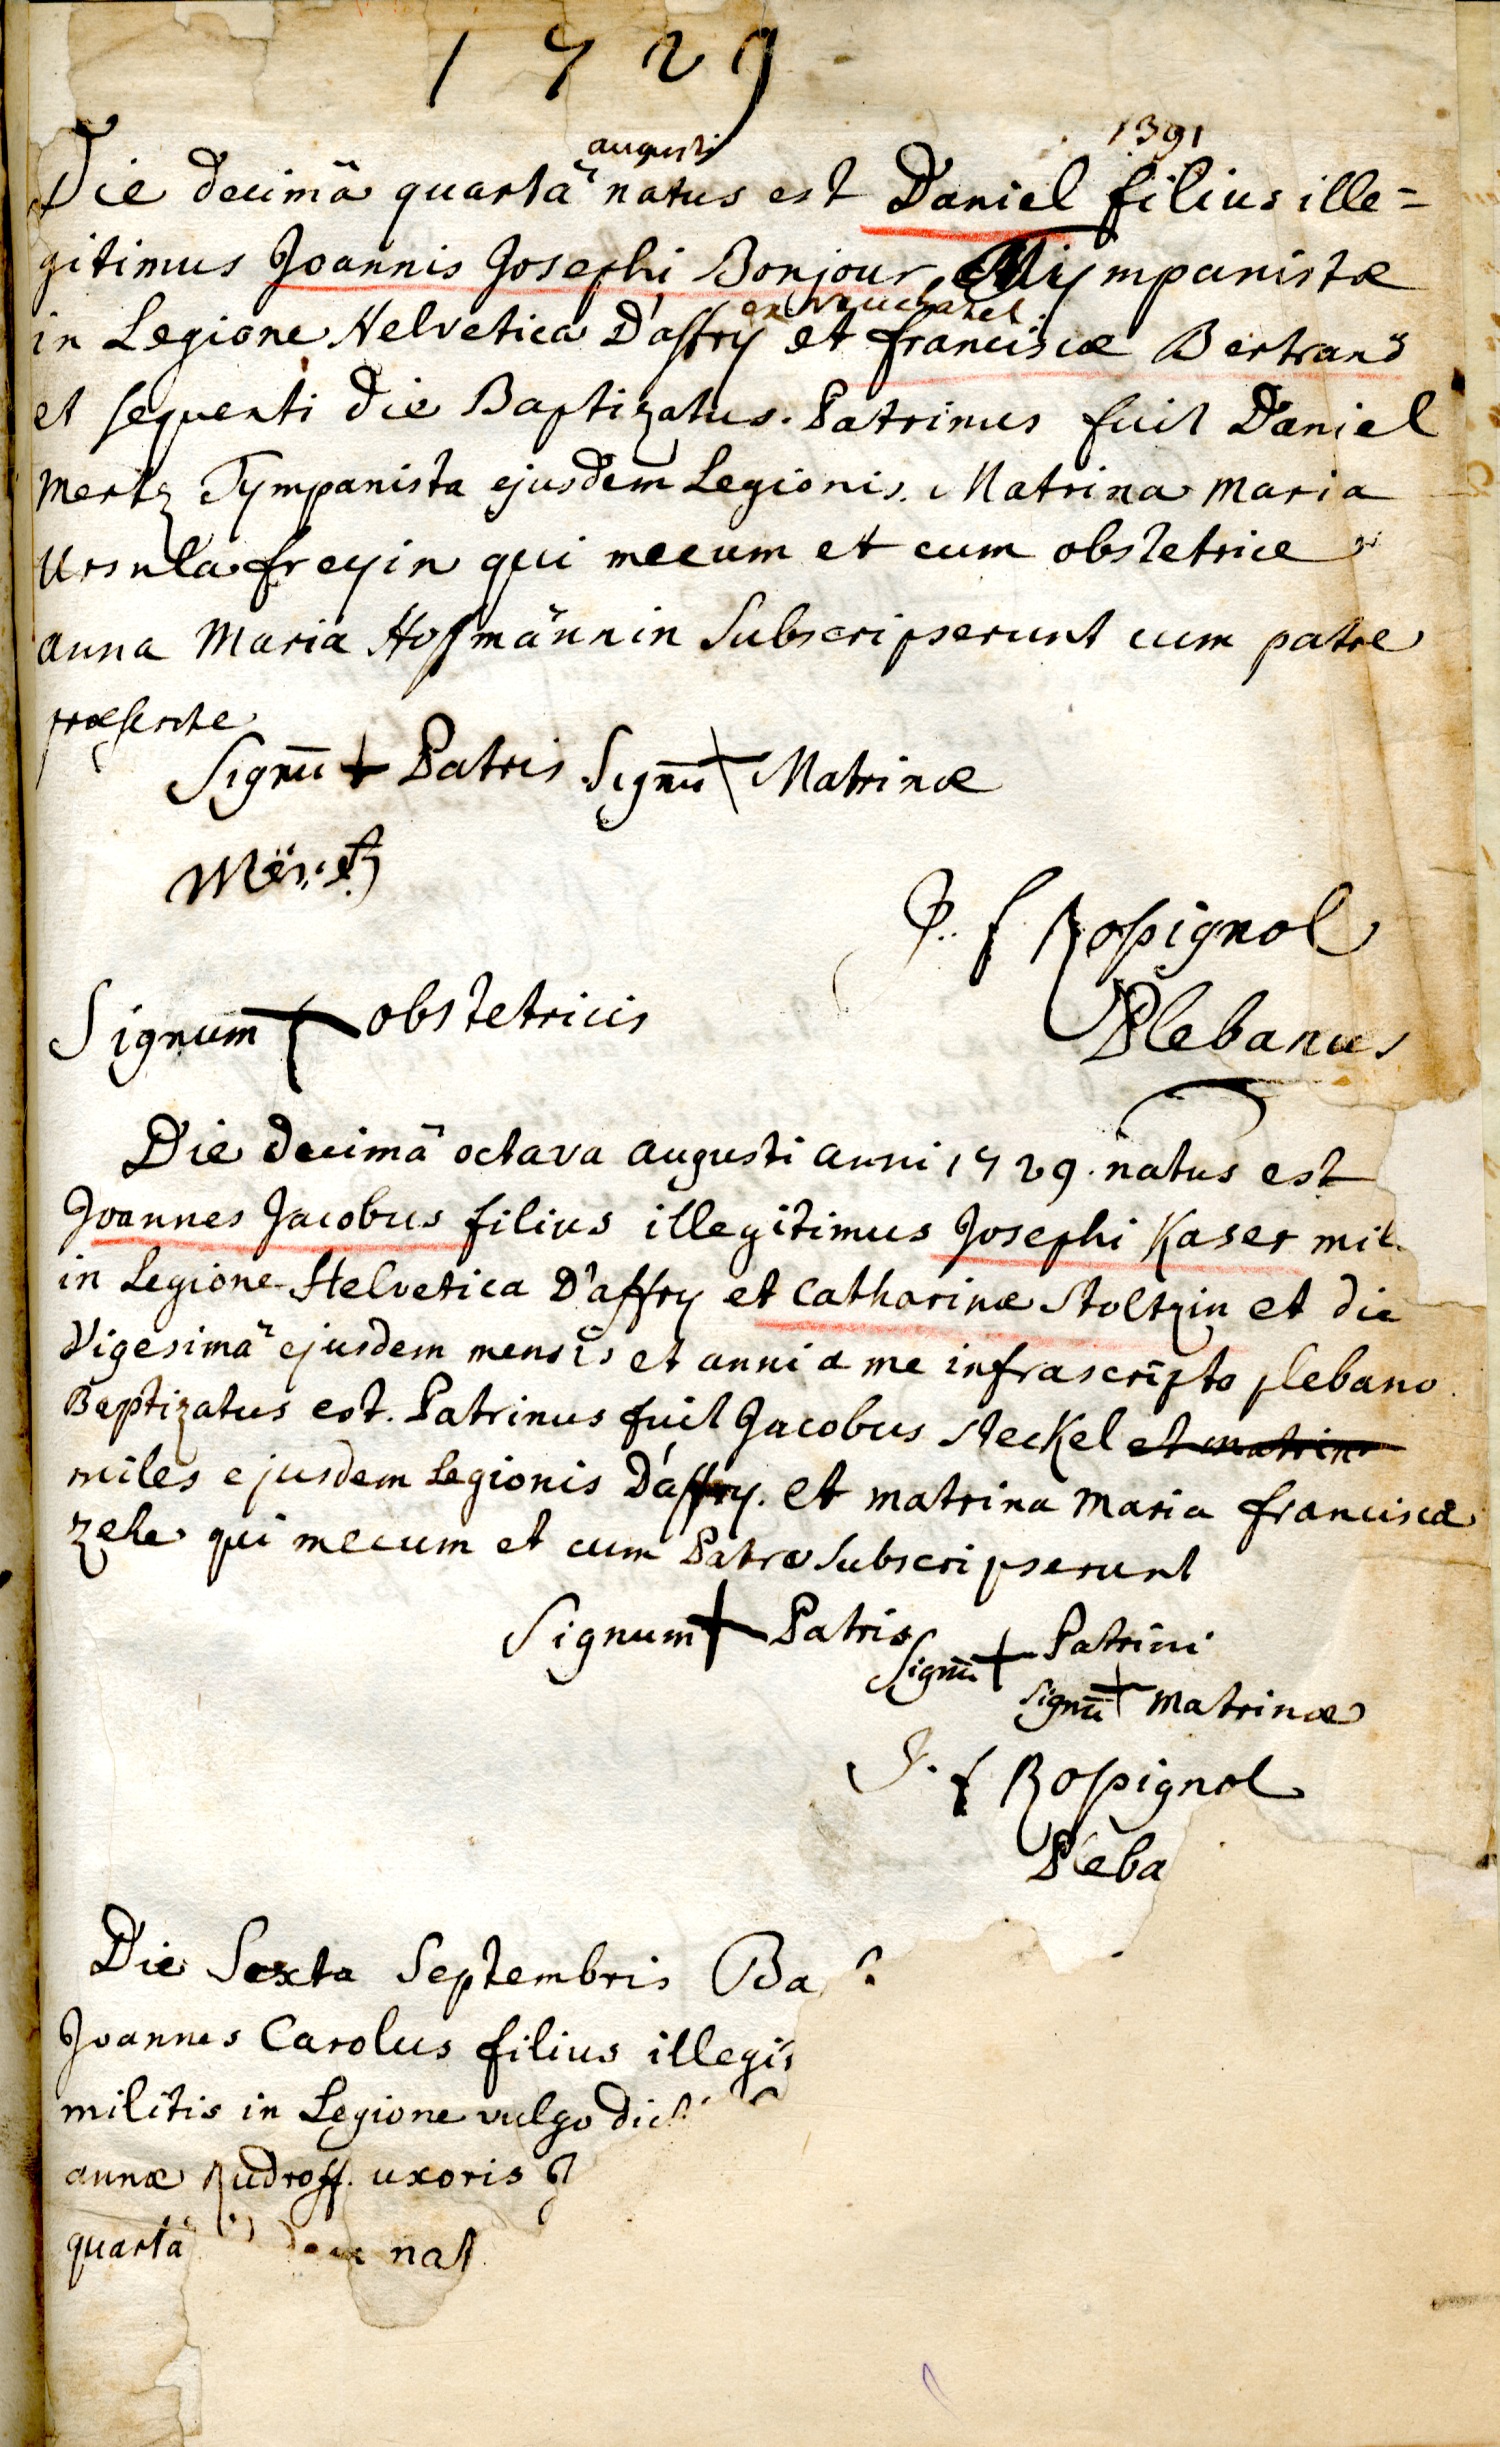 1729
augusti 1391
Die decimâ quartâ natus est Daniel filius ille=
gitimus Joannis Josephi Bonjour Tympanistæ
ex Neuchatel
in Legione Helvetica D'affry et franciscæ Bertrand
et sequenti die Baptizatus. Patrinus fuit Daniel
Mertz Tympanista ejusdem Legionis. Matrina Maria
Ursula freyin qui mecum et cum obstetrice
anna Maria Hofmännin Subscripserunt cum patre
præsente
Signū + Patris Signū + Matrinæ
J. f Rossignol
Signum + obstetricis
Plebanus
Die decimâ octava augusti anni 1729. natus est
Joannes Jacobus filius illegitimus Josephi Kaser mil.
in Legione Helvetica D'affry et Catharinæ Stoltzin et die
Vigesimâ ejusdem mensis et anni a me infrascripto plebano
Baptizatus est. Patrinus fuit Jacobus Steckel et matrina
miles ejusdem Legionis D'affry. et matrina Maria francisca
zehe qui mecum et cum Patre Subscripserunt
Signum + Patris
Signū + Patrini
Signū + Matrinæ
J. f Rossignol
Pleba
Die Sexta Septembris Ba
Joannes Carolus filius illegi
militis in Legione vulgo dict
annæ Rudroff. uxoris J
quartâ nat